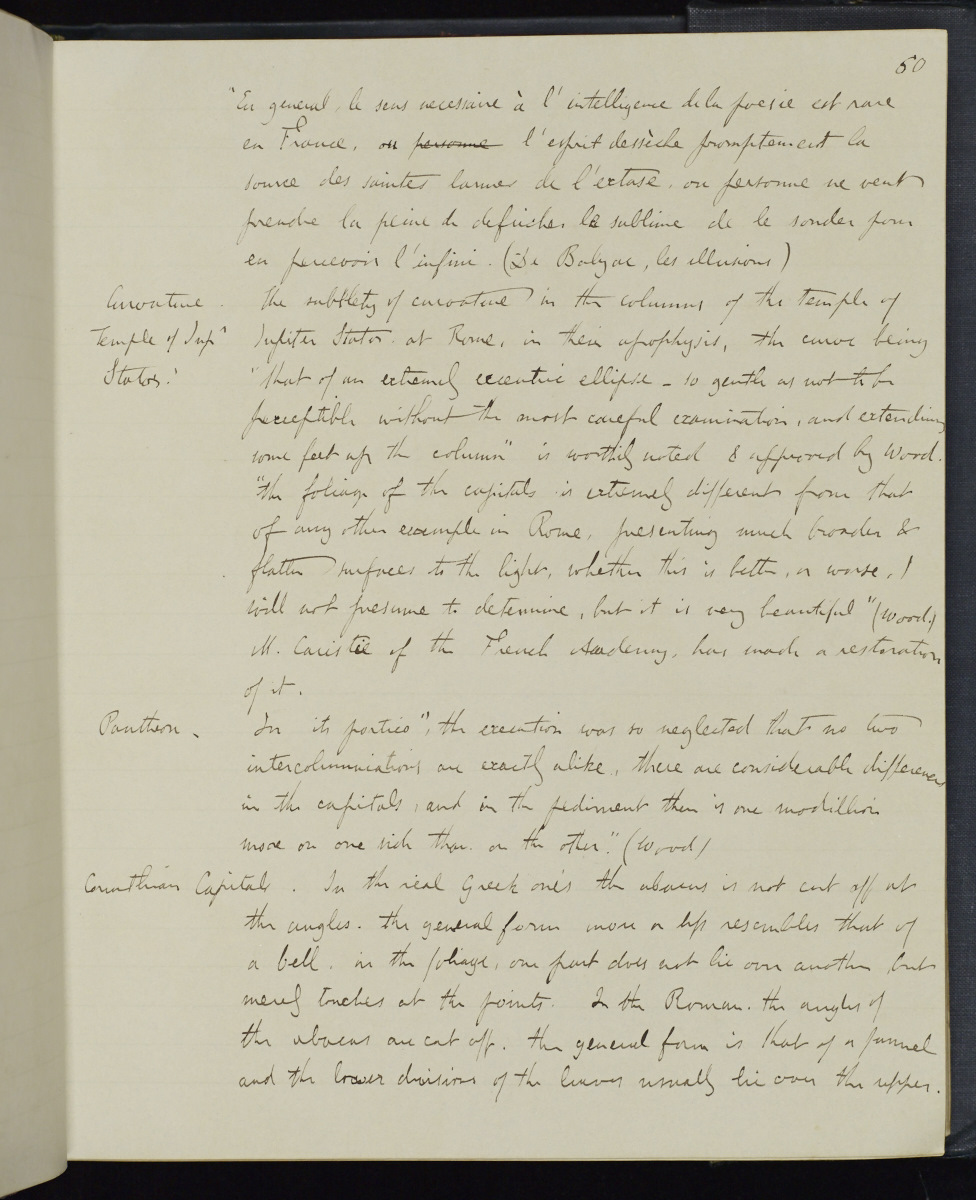 50
"En general, le sens necessaire à l' intelligence de la poesie est rare
en France, ou personne l'esprit dessèche promptement la
source des saintes larmes de l'extase, ou personne ne veut
prendre la peine de defricher le sublime de le sonder pour
en percevoir l'infini. (De Balzac, les illusions)
Curvature. The subtlety of curvature in the columns of the temple of
Temple of Jupr Jupiter Stator at Rome, in their apophysis, the curve being
Stator. "that of an extremely excentric ellipse - so gentle as not to be
perceptible without the most careful examination, and extending
some feet up the column" is worthily noted & approved by Wood.
"the foliage of the capitals is extremely different from that
of any other example in Rome, presenting much broader &
flatter surfaces to the light, whether this is better, or worse, I
will not presume to determine, but it is very beautiful" (Wood.)
M. Caristie of the French Academy, has made a restoration
of it.
Pantheon. In its portico", the execution was so neglected that no two
intercolumniations are exactly alike, there are considerable differences
in the capitals, and in the pediment there is one modillion
more on one side than on the other." (Wood)
Corinthian Capitals. In the real Greek ones the abacus is not cut off at
the angles. the general form more or less resembles that of
a bell. in the foliage, one part does not lie over another, but
merely touches at the points. In the Roman. the angles of
the abacus are cut off. the general form is that of a funnel
and the lower divisions of the leaves usually lie over the upper.